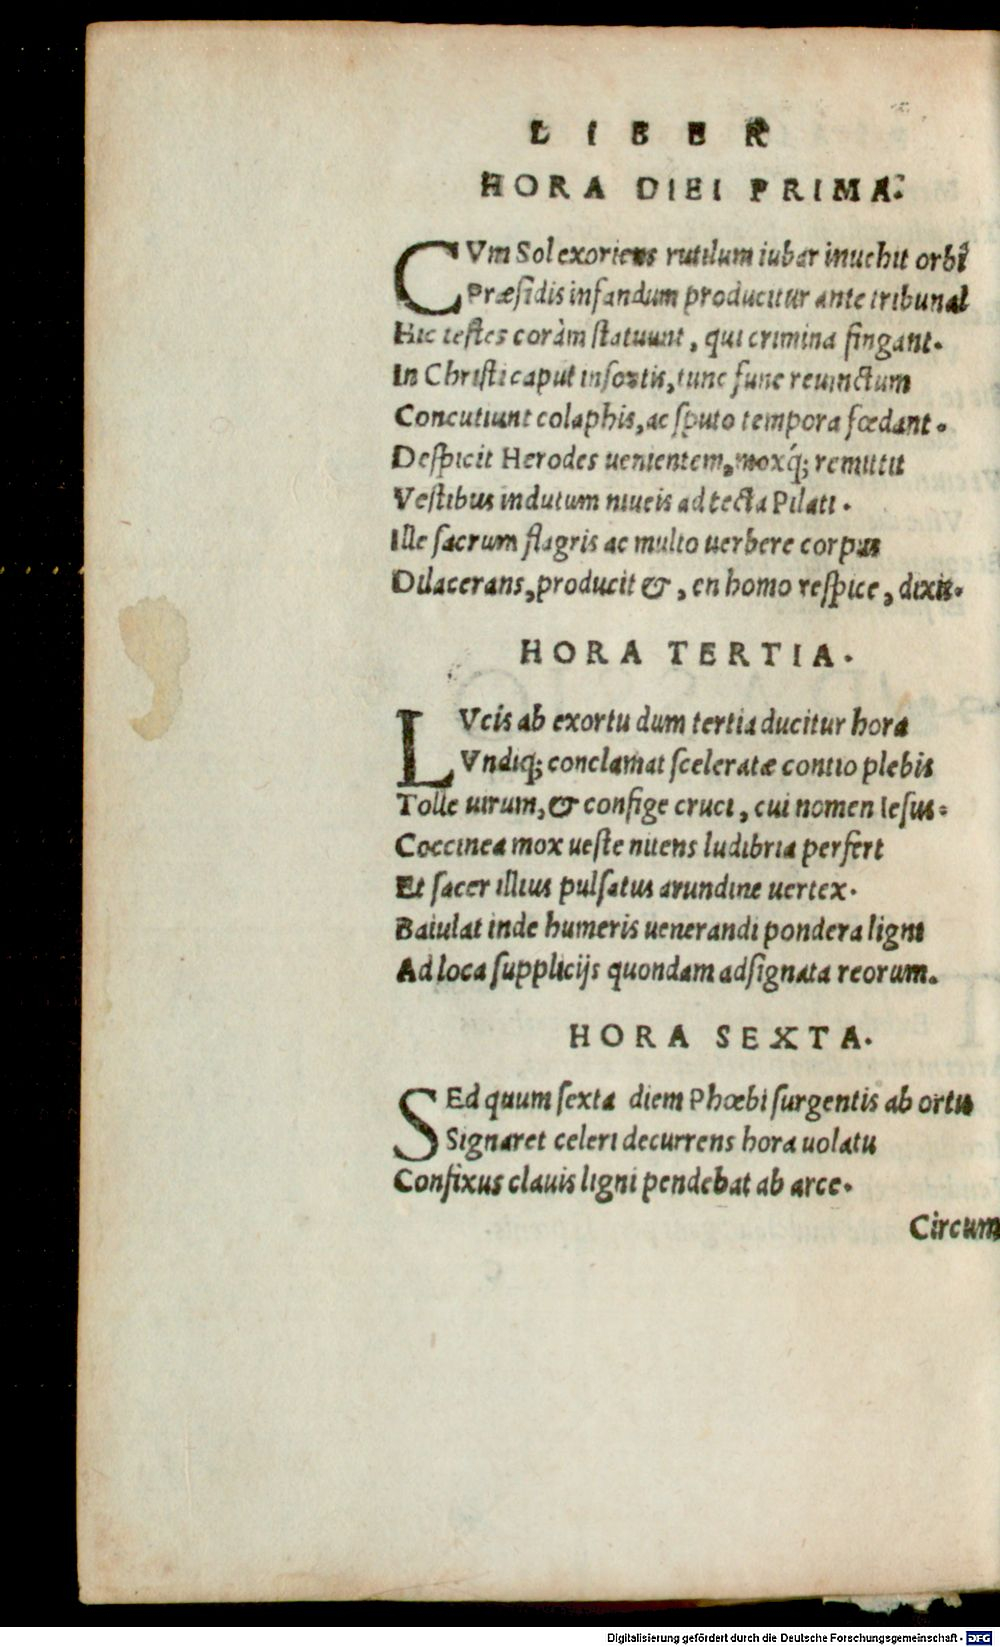 LIBER
HORA DIEI PRIMA.
CVm Sol exoriens rutilum iubar inuehit orbi
Præſidis infandum producitur ante tribunal
Hic teſtes coràm ſtatuunt, qui crimina fingant.
In Chriſti caput inſontis, tunc fune reuinctum
Concutiunt colaphis, ac ſputo tempora fœdant.
Deſpicit Herodes uenientem, moxq́; remittit
Veſtibus indutum niueis ad tecta Pilati.
Ille ſacrum flagris ac multo uerbere corpus
Dilacerans, producit &, en homo reſpice, dixit.
HORA TERTIA.
LVcis ab exortu dum tertia ducitur hora
Vndiq; conclamat ſceleratæ contio plebis
Tolle uirum, & confige cruci, cui nomen Ieſus.
Coccinea mox ueſte nitens ludibria perfert
Et ſacer illius pulſatus arundine uertex.
Baiulat inde humeris uenerandi pondera ligni
Ad loca ſupplicijs quondam adſignata reorum.
HORA SEXTA.
SEd quum ſexta diem Phœbi ſurgentis ab ortu
Signaret celeri decurrens hora uolatu
Confixus clauis ligni pendebat ab arce.
Circum
Digitalisierung gefördert durch die Deutsche Forschungsgemeinschaft - DFG